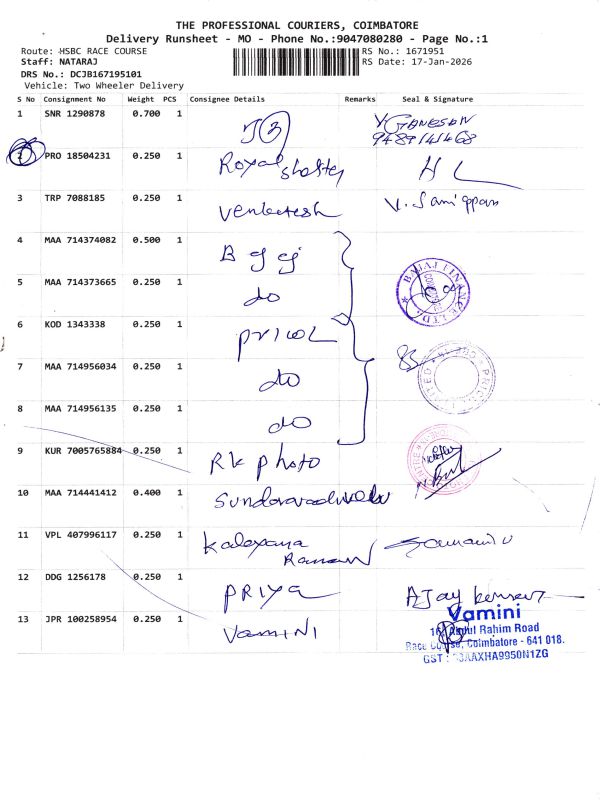 THE PROFESSIONAL COURIERS, COIMBATORE
Delivery Runsheet - MO - Phone No.:9047080280 - Page No.:1
Route: HSBC RACE COURSE RS No.: 1671951
Staff: NATARAJ RS Date: 17-Jan-2026
DRS No.: DCJB167195101
Vehicle: Two Wheeler Delivery
S No Consignment No Weight PCS Consignee Details Remarks Seal & Signature
1 SNR 1290878 0.700 1 YGANESAN
9489141468
2 PRO 18504231 0.250 1 Royal shelter
3 TRP 7088185 0.250 1 Venketesh V.
4 MAA 714374082 0.500 1
5 MAA 714373665 0.250 1 do BAJAJ FINANCE LTD.
6 KOD 1343338 0.250 1 pricol
7 MAA 714956034 0.250 1 do
8 MAA 714956135 0.250 1 do
9 KUR 7005765884 0.250 1 Rk photo
10 MAA 714441412 0.400 1
11 VPL 407996117 0.250 1 Kaleyana
Raman
12 DDG 1256178 0.250 1 PRIYA AJay
13 JPR 100258954 0.250 1 VAMINI Vamini
Abdul Rahim Road
Race Course, Coimbatore - 641 018.
GST :